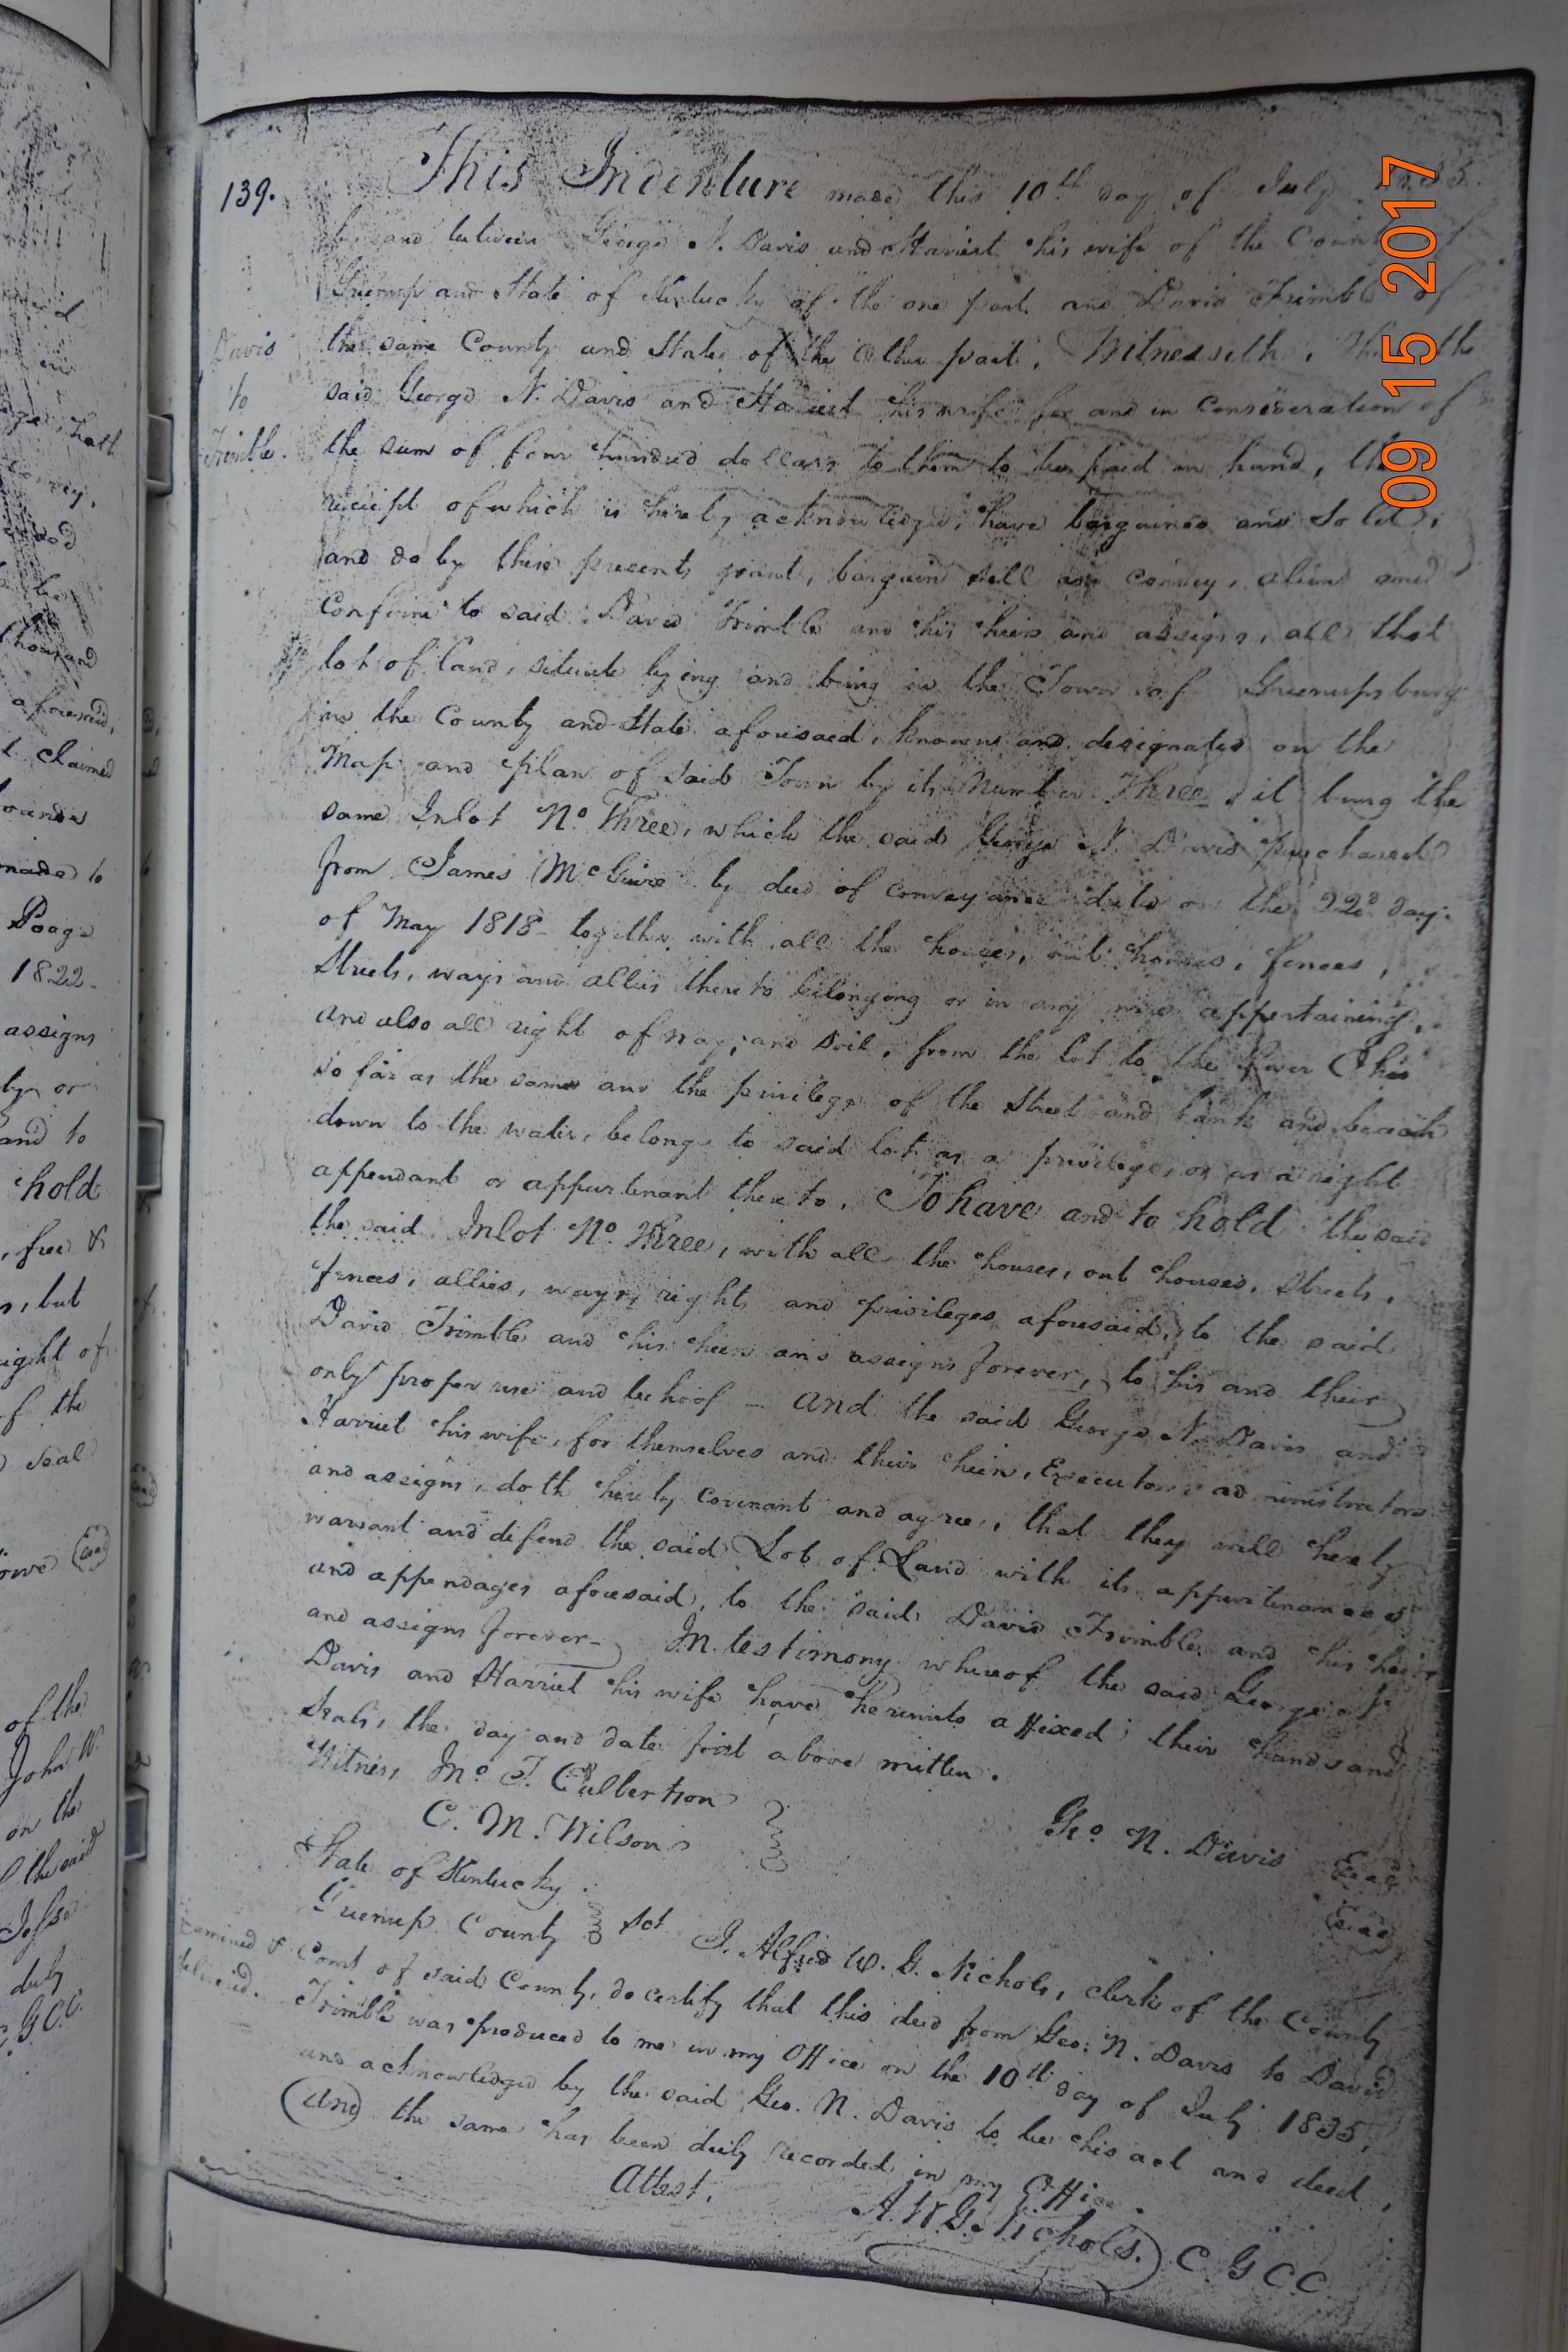 139.
This Indenture made this 10th day of July
by and between George N. Davis and Harriet his wife of the County of
Greenup and State of Kentucky of the one part and David Trimble of
Davis the same County and State of the Other part, Witnesseth, That the
to said George N. Davis and Harriet his wife for and in consideration of
Trimble. the sum of four hundred dollars to them to be paid in hand, the
receipt of which is hereby acknowledged, have bargained and sold,
and do by these presents grant, bargain sell and convey, alien and
confirm to said David Trimble and his heirs and assigns, all that
lot of land, situate lying and being in the Town of Greenupsburg
in the County and State aforesaid, known and designated on the
Map and plan of said Town by its Number Three, it being the
same Inlot No Three, which the said George N. Davis purchased
from James McGuire by deed of conveyance dated on the 22d day
of May 1818 together with all the houses, out houses, fences,
Streets, ways and allies thereto belonging or in any wise appertaining,
and also all right of way, and soil, from the lot to the River Ohio
so far as the same and the privilege of the Street and bank and beach
down to the water, belongs to said lot as a privilege, or as a right
appendant or appurtenant thereto. To have and to hold the said
the said Inlot No Three, with all the houses, out houses, Streets,
fences, allies, ways, rights and privileges aforesaid, to the said
David Trimble and his heirs and assigns forever, to his and their
only proper use and behoof - and the said George N. Davis and
Harriet his wife, for themselves and their heirs, Executors, administrators
and assigns, doth hereby covenant and agree, that they will hereby
warrant and defend the said Lot of Land with its appurtenances
and appendages aforesaid, to the said David Trimble and his heirs
and assigns forever- In testimony whereof the said George N.
Davis and Harriet his wife have hereunto affixed their hands and
Seals, the day and date first above written.
Witness Jno T. Culbertson
C. M. Wilson
Geo N. Davis Seal
Seal
State of Kentucky
Greenup County Sct I. Alfred W. G. Nichols, clerk of the County
Examined & Court of said County, do certify that this deed from Geo: N. Davis to David
delivered. Trimble was produced to me in my Office on the 10th day of July 1835,
and acknowledged by the said Geo. N. Davis to be his act and deed,
And the same has been duly recorded in my Office.
Attest, A. W. G. Nichols. C. G. C. C.
09 15 2017
aforesaid,
claimed
made to
Poage
1822-
assigns
and to
hold
, free &
, but
right of
of the
Seal
of the
John W.
on the
the said
Jesse
duly
G.C.C.